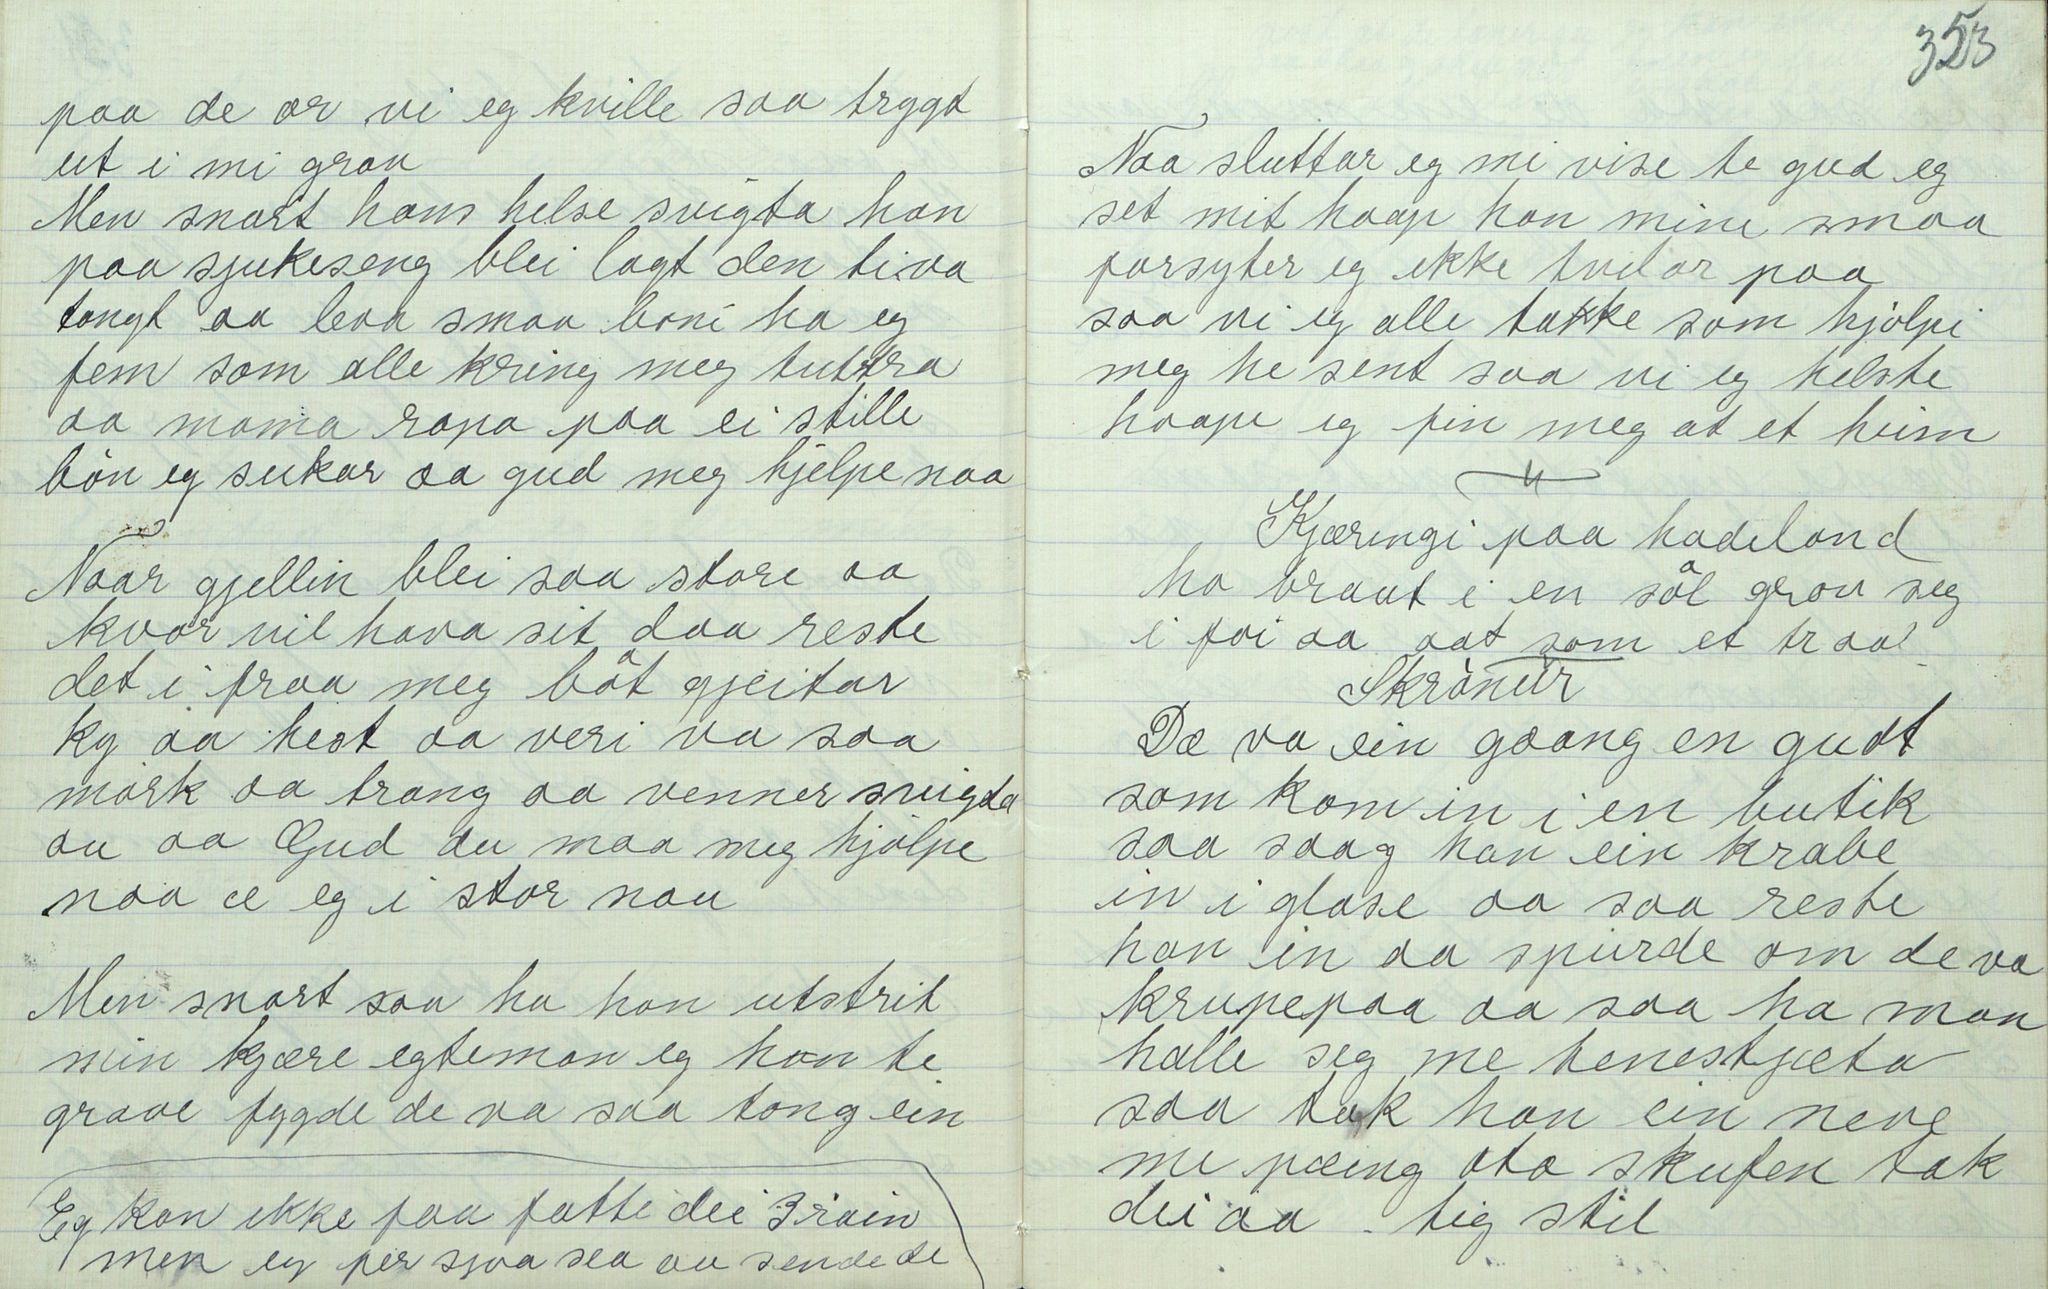 paa de ær vi eg kville saa trygt
ut i mi grav
Men snart hans helse svigta han
paa sjukeseng blei lagt den ti va
tongt aa leva smaa boni ha eg
fem som alle kring meg tuttra
aa mama ropa paa ei stille
bön eg sukar aa gud meg hjelpe naa
Naar gjellin blei saa store aa
kvar vil hava sit daa reste
det i fraa meg båt gjeitar
ky aa hest aa veri va saa
mörk aa trang aa venner svigta
au aa Gud du maa meg hjölpe
naa æ eg i stor nau
Men snart saa ha han utstrit
min kjære egteman eg han te
grave fygde de va saa tong ein
Eg kan ikke faa fatte dei 3 
men eg fer sjaa sea au sende de
353
Naa sluttar eg mi vise te gud eg
set mit haap han mine smaa
forsyter eg ikke tvilar paa
saa vi eg alle takke som hjölpi
meg he sent saa vi eg helste
haape eg fin meg at et heim
Kjæringi paa hadeland
ho braut i en söl grav seg
i foi aa aat som et traal
Skrönur
De va ein gaang en gudt
som kom in i en butik
saa saag han ein krabe
in i glase aa saa reste
han in aa spurde om de va
krupepaa aa saa ha man
halle seg me henestjæta
saa tok han ein neve
me pæing ota skufen tok
dei aa tig stil